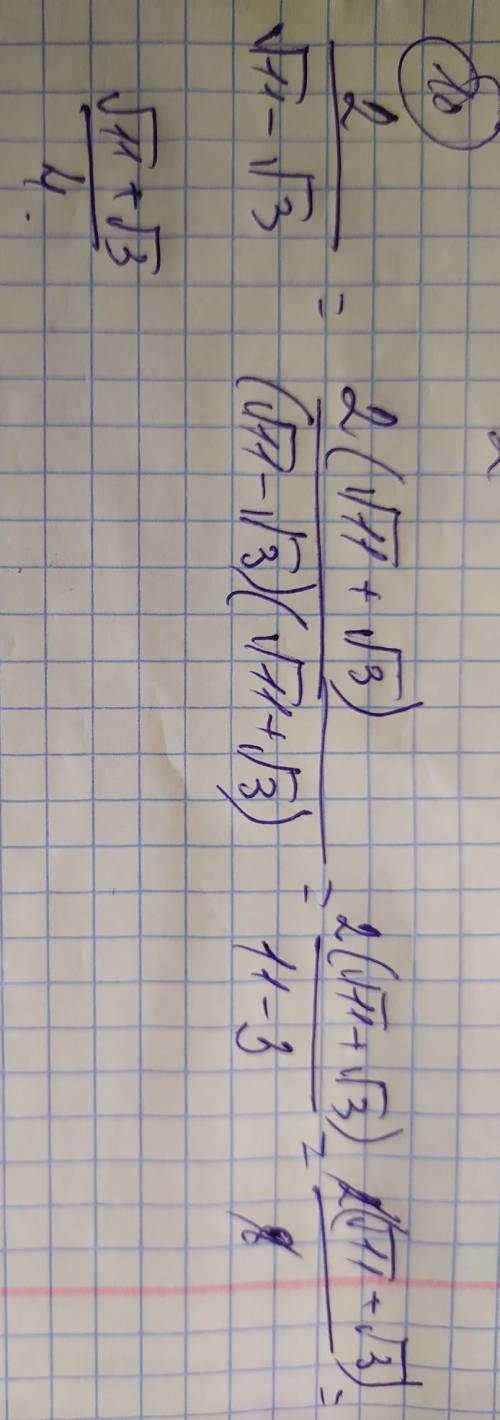 10
2/(√11-√3) = 2(√11+√3)/((√11-√3)(√11+√3)) = 2(√11+√3)/(11-3) = 2(√11+√3)/8 =
(√11+√3)/4.